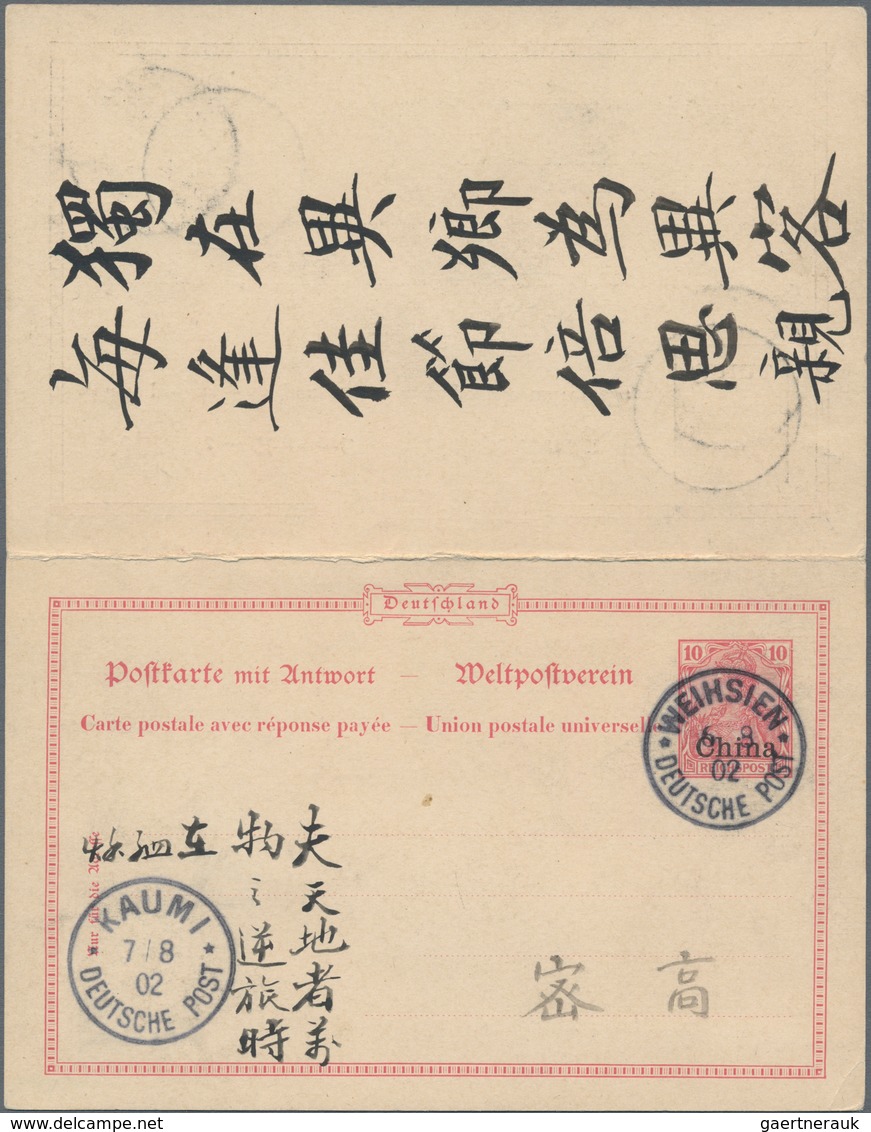 獨在異鄉為異客
每逢佳節倍思親
Deutschland
Postkarte mit Antwort — Weltpostverein
Carte postale avec réponse payée — Union postale universelle
10 10
China
REICHSPOST
WEIHSIEN
02
DEUTSCHE POST
夫天地者萬
物之逆旅時
在
KAUMI
7/8
02
DEUTSCHE POST
高密
gaertnerauk